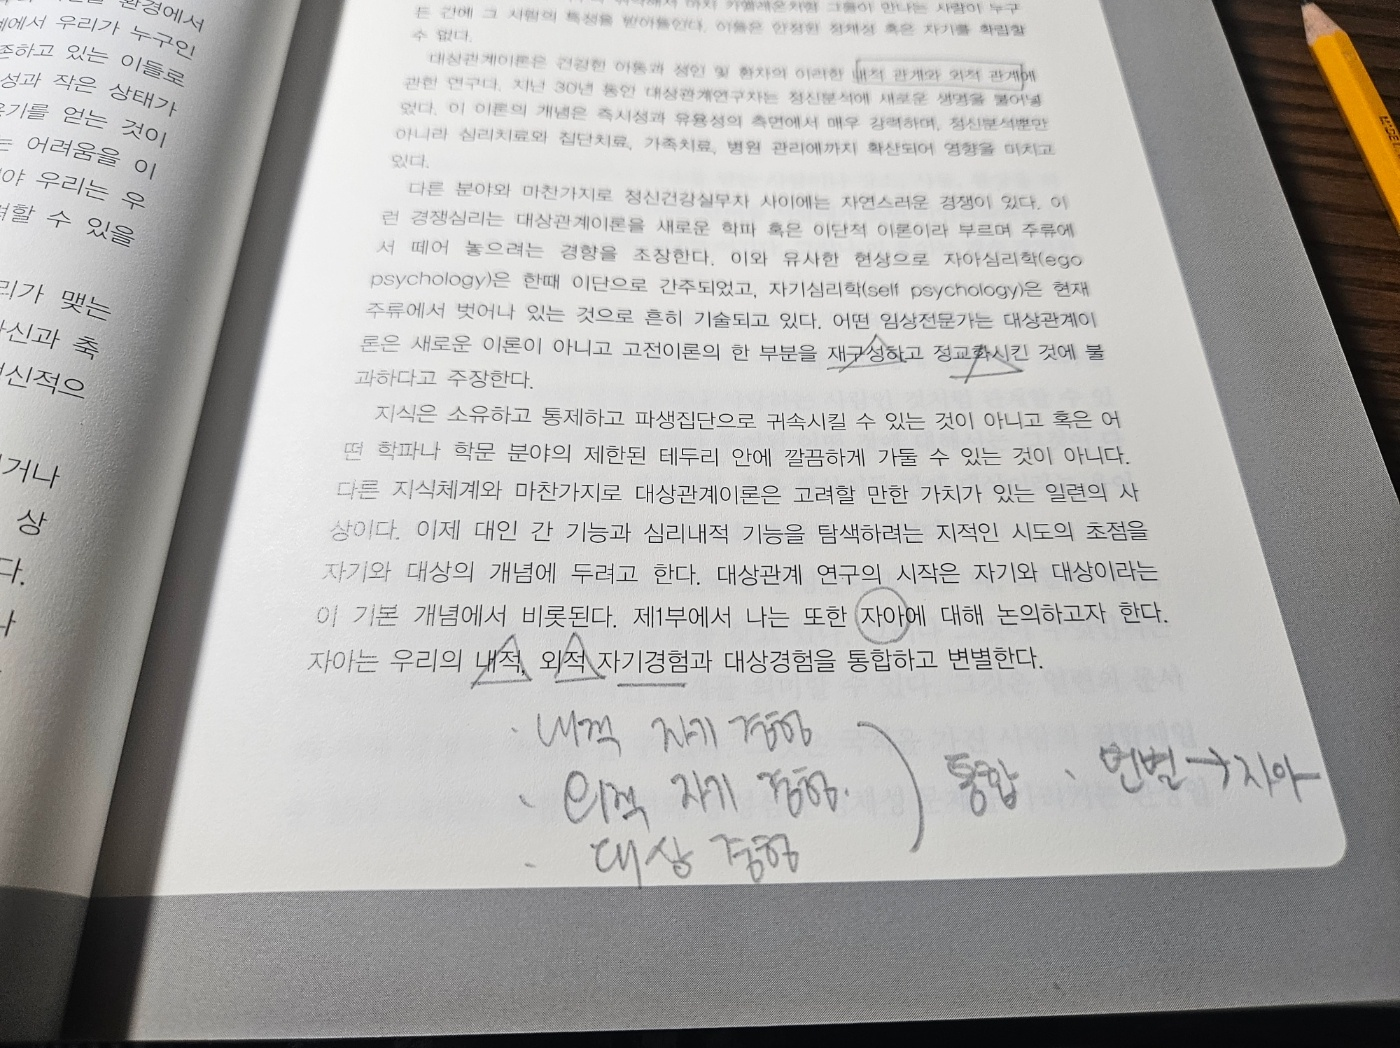 환경에서
에서 우리가 누구인
존하고 있는 이들로
성과 작은 상태가
용기를 얻는 것이
는 어려움을 이
야 우리는 우
려할 수 있을
리가 맺는
자신과 축
정신적으
거나
상
다.
나
마치 카멜레온처럼 그들이 만나는 사람이 누구
든 간에 그 사람의 특성을 받아들인다. 이들은 안정된 정체성 혹은 자기를 확립할
수 없다.
대상관계이론은 건강한 아동과 성인 및 환자의 이러한 내적 관계와 외적 관계에
관한 연구다. 지난 30년 동안 대상관계연구자는 정신분석에 새로운 생명을 불어넣
었다. 이 이론의 개념은 즉시성과 유용성의 측면에서 매우 강력하며, 정신분석뿐만
아니라 심리치료와 집단치료, 가족치료, 병원 관리에까지 확산되어 영향을 미치고
있다.
다른 분야와 마찬가지로 정신건강실무자 사이에는 자연스러운 경쟁이 있다. 이
런 경쟁심리는 대상관계이론을 새로운 학파 혹은 이단적 이론이라 부르며 주류에
서 떼어 놓으려는 경향을 조장한다. 이와 유사한 현상으로 자아심리학(ego
psychology)은 한때 이단으로 간주되었고, 자기심리학(self psychology)은 현재
주류에서 벗어나 있는 것으로 흔히 기술되고 있다. 어떤 임상전문가는 대상관계이
론은 새로운 이론이 아니고 고전이론의 한 부분을 재구성하고 정교화시킨 것에 불
과하다고 주장한다.
지식은 소유하고 통제하고 파생집단으로 귀속시킬 수 있는 것이 아니고 혹은 어
떤 학파나 학문 분야의 제한된 테두리 안에 깔끔하게 가둘 수 있는 것이 아니다.
다른 지식체계와 마찬가지로 대상관계이론은 고려할 만한 가치가 있는 일련의 사
상이다. 이제 대인 간 기능과 심리내적 기능을 탐색하려는 지적인 시도의 초점을
자기와 대상의 개념에 두려고 한다. 대상관계 연구의 시작은 자기와 대상이라는
이 기본 개념에서 비롯된다. 제1부에서 나는 또한 자아에 대해 논의하고자 한다.
자아는 우리의 내적, 외적 자기경험과 대상경험을 통합하고 변별한다.
· 내적 자기 경험
· 외적 자기 경험.
· 대상 경험
통합 、 변별 → 자아